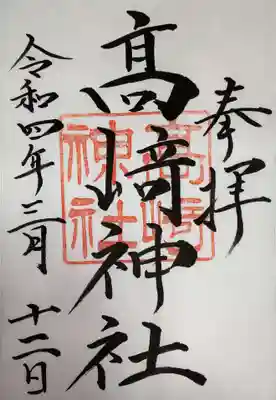 奉拝
高崎神社
高崎神社
令和四年三月十二日